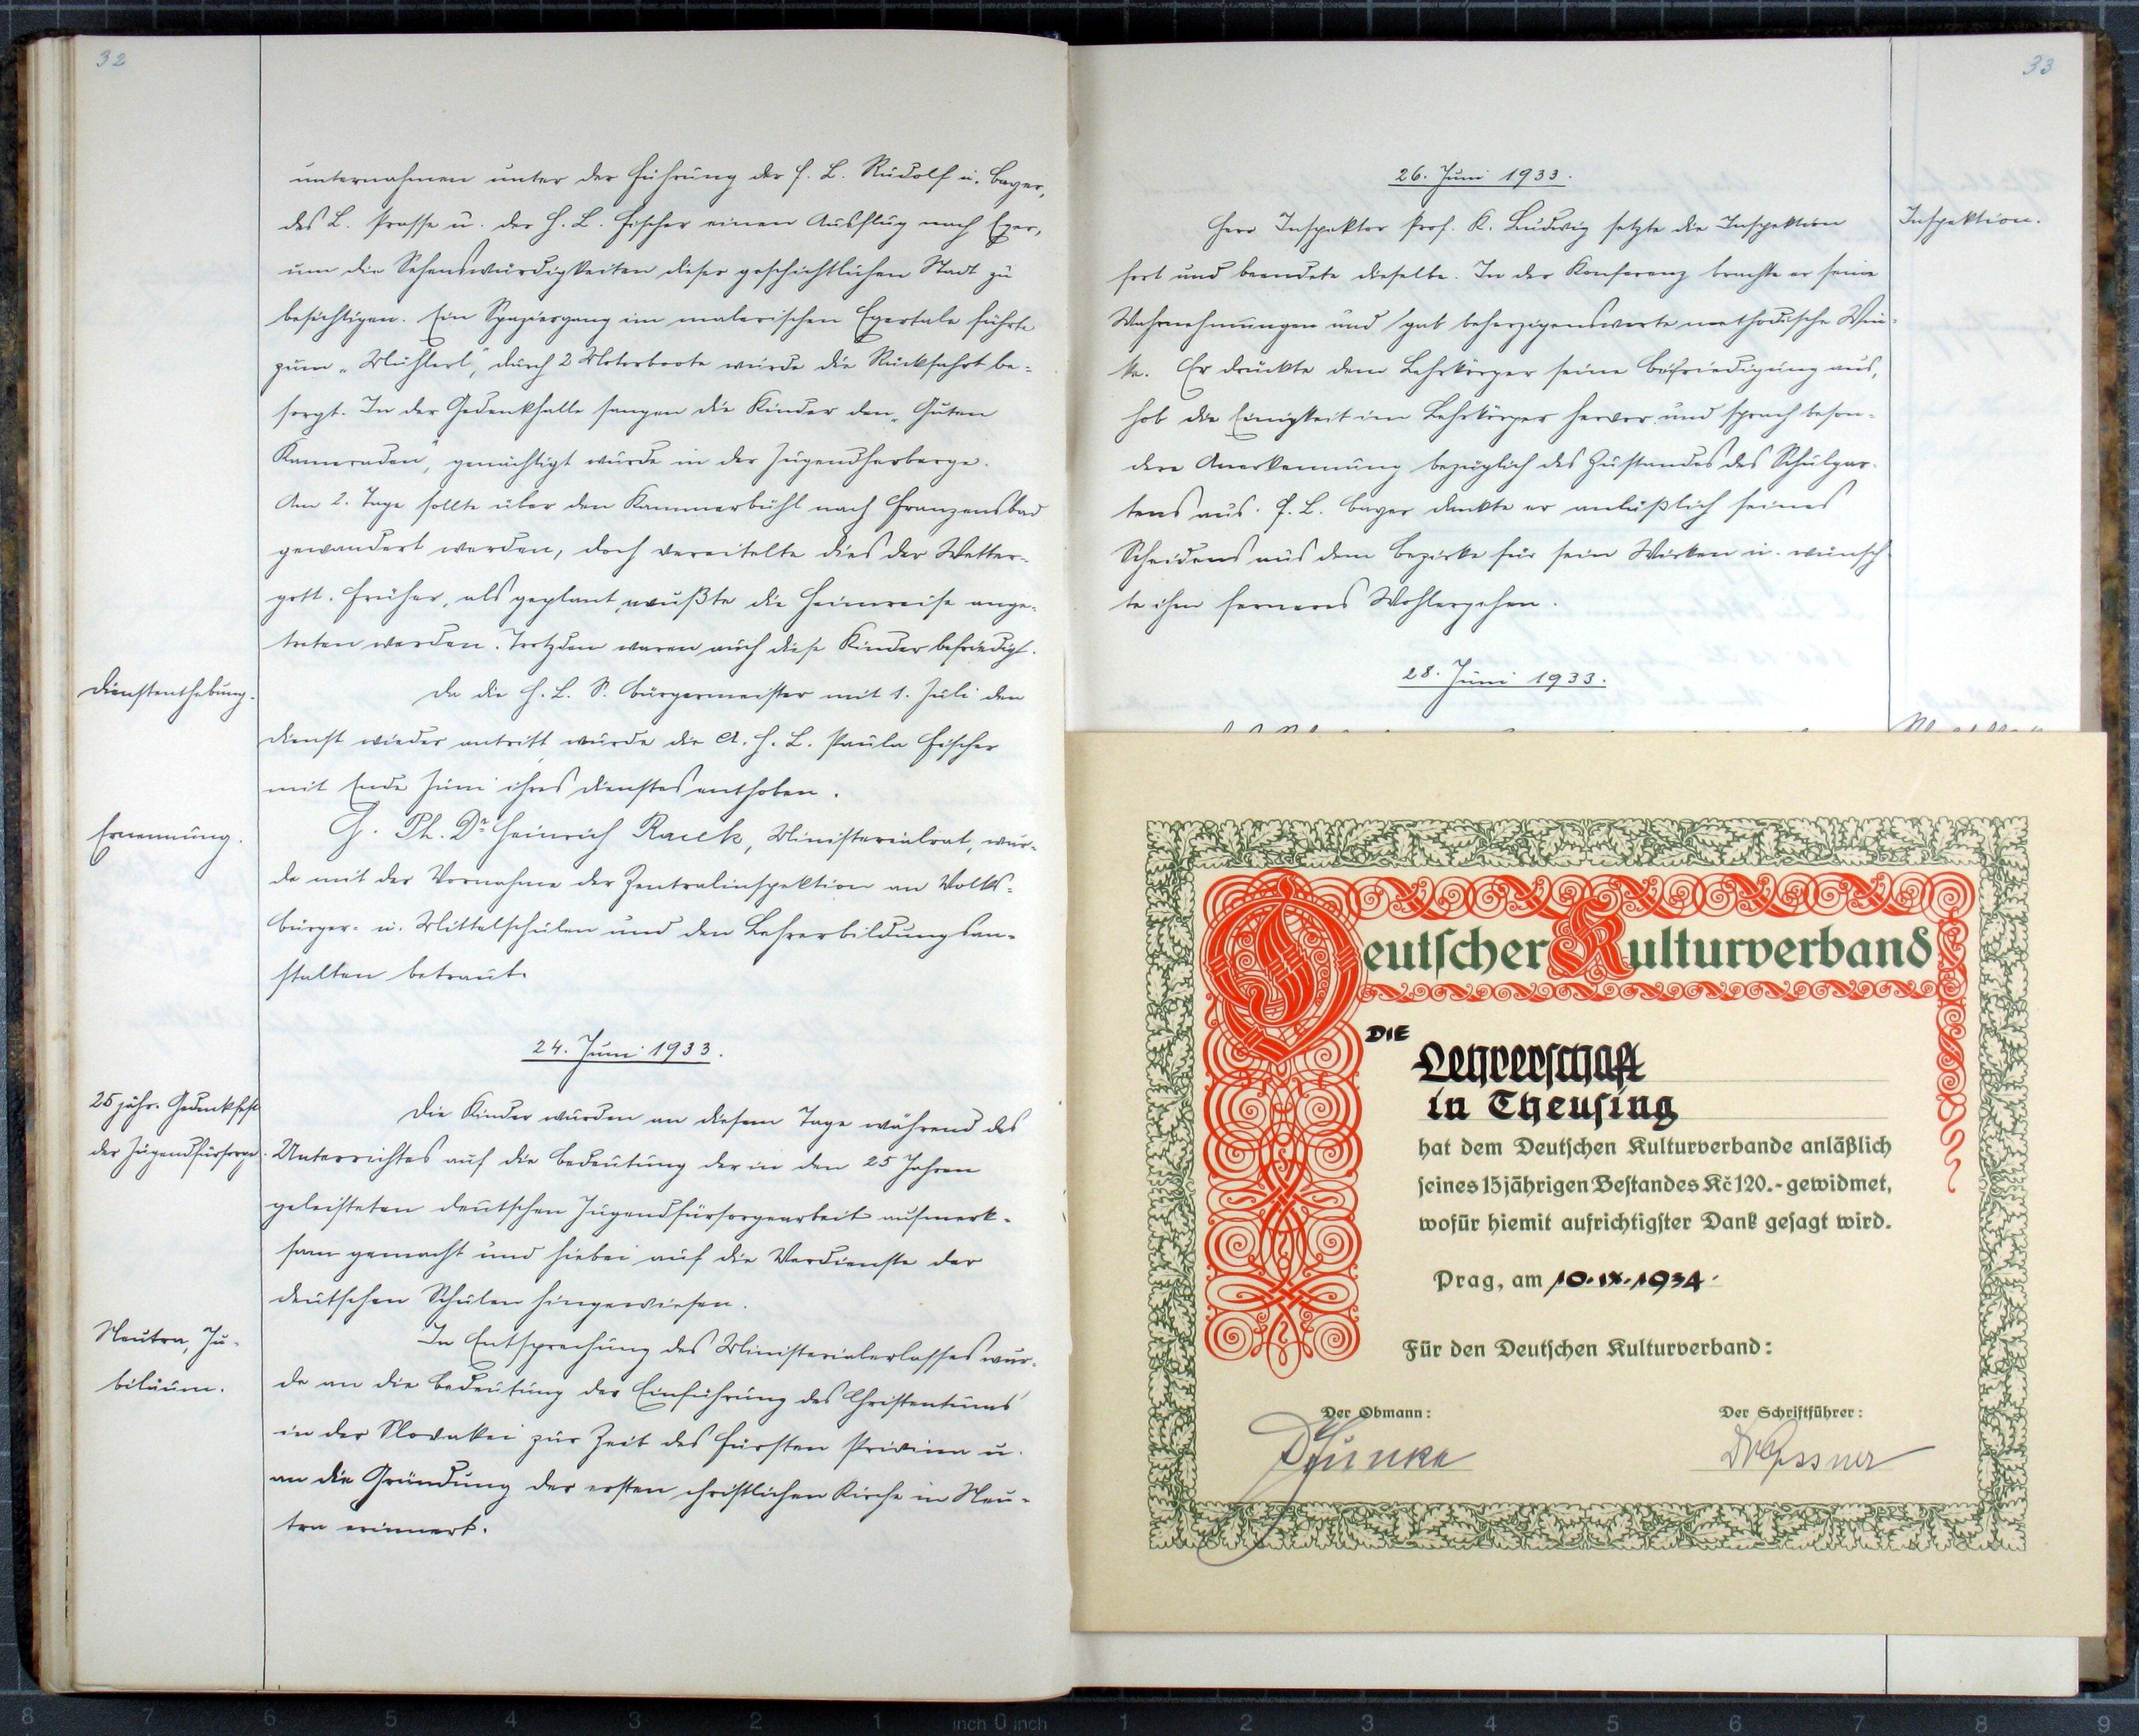 32
unternahmen unter der Führung der F. L. Rudolf u. Bayer,
des L. Prosse u. der H. L. Fischer einen Ausflug nach Eger,
um die Sehenswürdigkeiten dieser geschichtlichen Stadt zu
besichtigen. Ein Spaziergang im malerischen Egertale führte
zum „Mühlerl", durch 2 Motorboote wurde die Rückfahrt be-
sorgt. In der Gedenkhalle sangen die Kinder den „Guten
Kameraden", genächtigt wurde in der Jugendherberge.
Am 2. Tage sollte über den Kammerbühl nach Franzensbad
gewandert werden, doch vereitelte dies der Wetter-
gott. Früher, als geplant, mußte die Heimreise ange-
treten werden. Trotzdem waren auch diese Kinder befriedigt.
Dienstenthebung.
Da die H. L. S. Bürgermeister mit 1. Juli den
Dienst wieder antritt, wurde die A. H. L. Paula Fischer
mit Ende Juni ihres Dienstes enthoben.
Ernennung.
H. Ph. Dr. Heinrich Racek, Ministerialrat, wur-
de mit der Vornahme der Zentralinspektion an Volks-
bürger- u. Mittelschulen und den Lehrerbildungsan-
stalten betraut.
24. Juni 1933.
25 jähr. Gedenkfest
der Jugendfürsorge.
Die Kinder wurden an diesem Tage während des
Unterrichtes auf die Bedeutung der in den 25 Jahren
geleisteten deutschen Jugendfürsorgearbeit aufmerk-
sam gemacht und hiebei auf die Verdienste der
deutschen Schulen hingewiesen.
Neutra, Ju-
biläum.
In Entsprechung des Ministerialerlasses wur-
de an die Bedeutung der Einführung des Christentums
in der Slovakei zur Zeit des Fürsten Privina u.
an die Gründung der ersten christlichen Kirche in Neu-
tra erinnert.
33
26. Juni 1933.
Inspektion.
Herr Inspektor Prof. K. Ludwig setzte die Inspektion
fort und beendete dieselbe. In der Konferenz brachte er seine
Wahrnehmungen und gab beherzigenswerte methodische Win-
ke. Er drückte dem Lehrkörper seine Befriedigung aus,
hob die Einigkeit im Lehrkörper hervor und sprach beson-
dere Anerkennung bezüglich des Zustandes des Schulgar-
tens aus. F. L. Bayer dankte er anläßlich seines
Scheidens aus dem Bezirke für sein Wirken u. wünsch-
te ihm ferneres Wohlergehen.
28. Juni 1933.
Deutscher Kulturverband
DIE
Lehrerschaft
in Theusing
hat dem Deutschen Kulturverbande anläßlich
seines 15jährigen Bestandes Kč 120.- gewidmet,
wofür hiemit aufrichtigster Dank gesagt wird.
Prag, am 10.IX.1934.
Für den Deutschen Kulturverband:
Der Obmann:
Der Schriftführer:
8 7 6 5 4 3 2 1 inch 0 inch 1 2 3 4 5 6 7 8 9